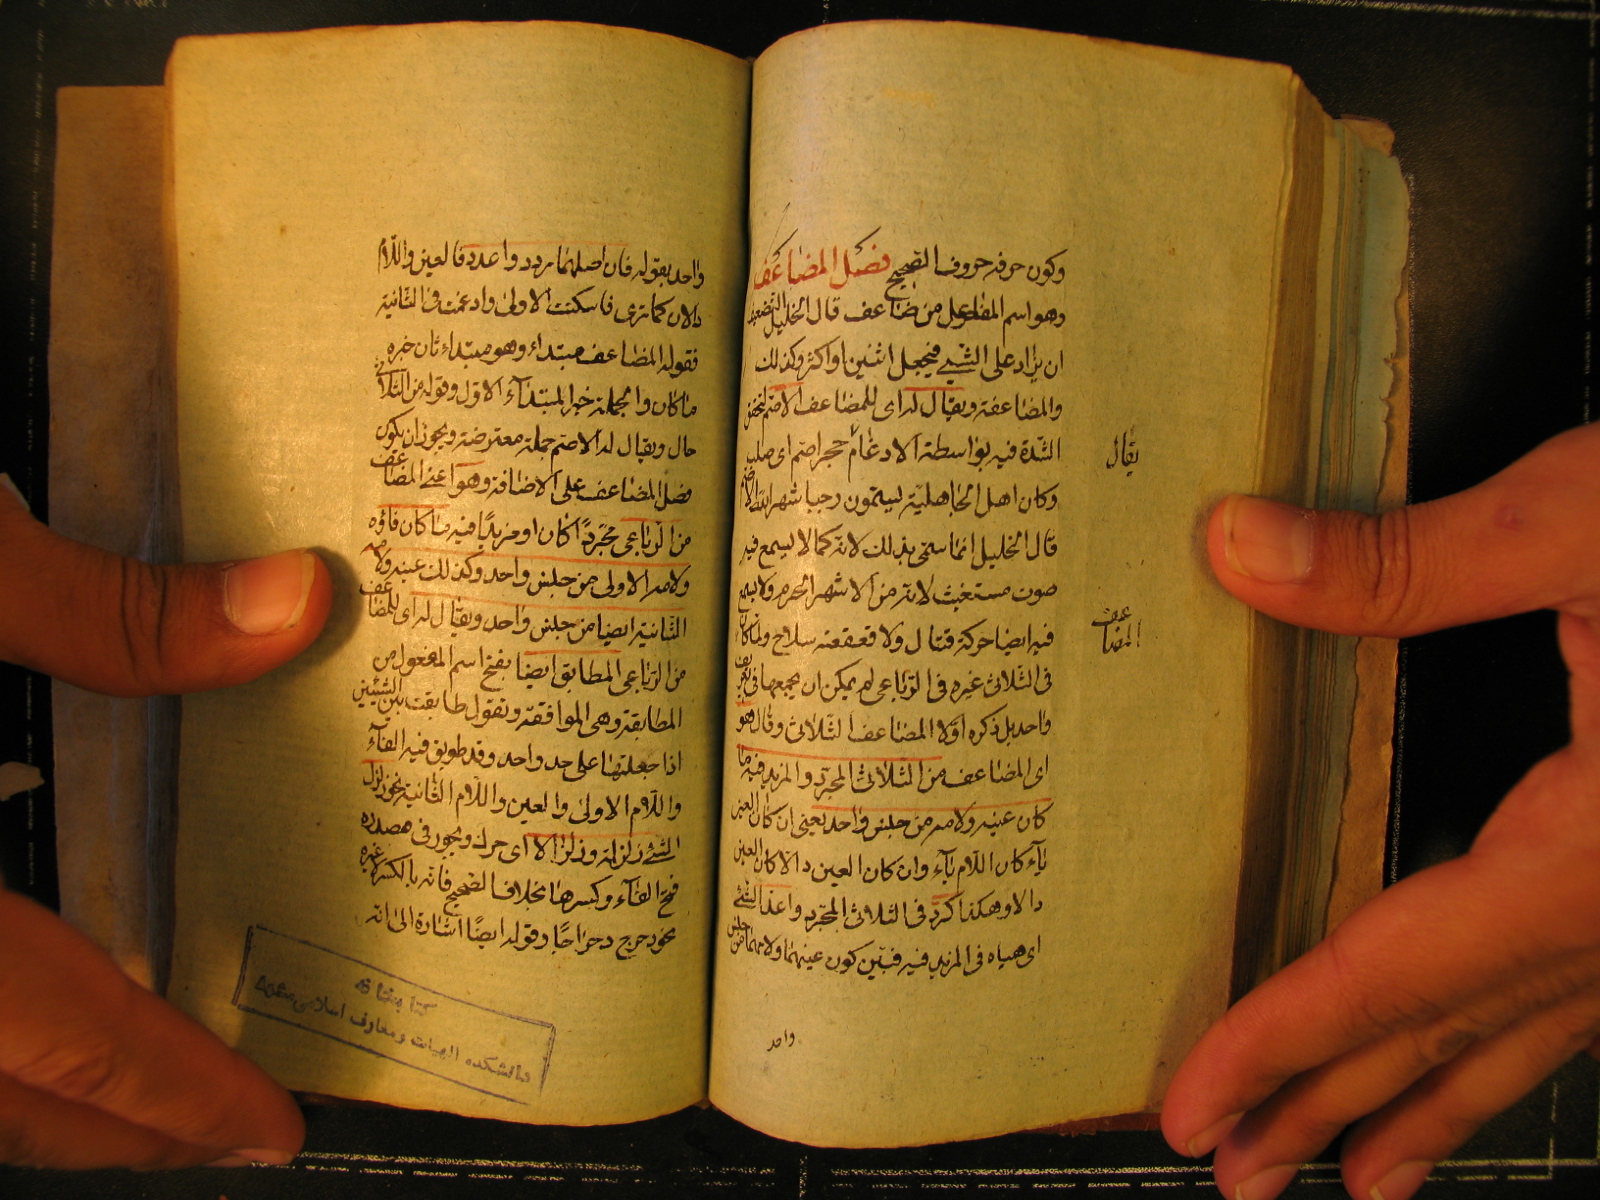 وكون حرفه حروف الصحيح فصل المضاعف
وهو اسم المفعول من ضاعف قال الخليل التضعيف
ان يزاد على الشيء فيجعل اثنين او اكثر وكذلك
والمضاعفة ويقال له اى للمضاعف الاصم لتحقق
الشدة فيه بواسطة الادغام حجر اصم اى صلب
وكان اهل الجاهلية ليسمون رجبا شهر الله الاصم
قال الخليل انما سمى بذلك لانه كما لا يسمع فيه
صوت مستغيث لانه من الاشهر الحرم ولا يسمع
فيه ايضا حركة قتال ولا قعقعة سلاح ولما كان
فى الثلاثى غيره فى الرباعى لم يمكن ان يجمعها فى تعريف
واحد بل ذكره اولا المضاعف الثلاثى وقال هو
اى المضاعف من الثلاثى المجرد والمزيد فيه ما
كان عينه ولامه من جنس واحد يعنى ان كان العين
ياء كان اللام ياء وان كان العين دالا كان العين
دالا وهكذا كرد فى الثلاثى المجرد واعد الشئ
اى هياه فى المزيد فيه فتبين كون عينهما ولامهما من جنس
واحد
يقال
المضاعف
واحد بقوله فان اصلهما ردد واعدد فالعين واللام
دالان كما ترى فاسكنت الاولى وادغمت فى الثانية
فقوله المضاعف مبتداء وهو مبتداء ثان خبره
ما كان والجملة خبر المبتداء الاول وقوله من الثلاثى
حال ويقال له الاصم جملة معترضة ويجوز ان يكون
فصل المضاعف على الاضافة وهو اعنى المضاعف
من الرباعى مجردا كان او مزيدا فيه ما كان فاؤه
ولامه الاولى من جنس واحد وكذلك عينه ولامه
الثانية ايضا من جنس واحد ويقال له اى للمضاعف
من الرباعى المطابق ايضا بفتح اسم المفعول من
المطابقة وهى الموافقة وتقول طابقت بين الشيئين
اذا جعلتهما على حد واحد وقد طوبق فيه الفآء
واللام الاولى والعين واللام الثانية نحو زلزل
الشئ زلزلة وزلزالا اى حرك ويجوز فى مصدره
فتح الفآء وكسرها بخلاف الصحيح فانه بالكسر لا غيره
نحو دحرج دحراجا وقوله ايضا اشارة الى انه
كتابخانه
دانشکده الهیات و معارف اسلامی مشهد